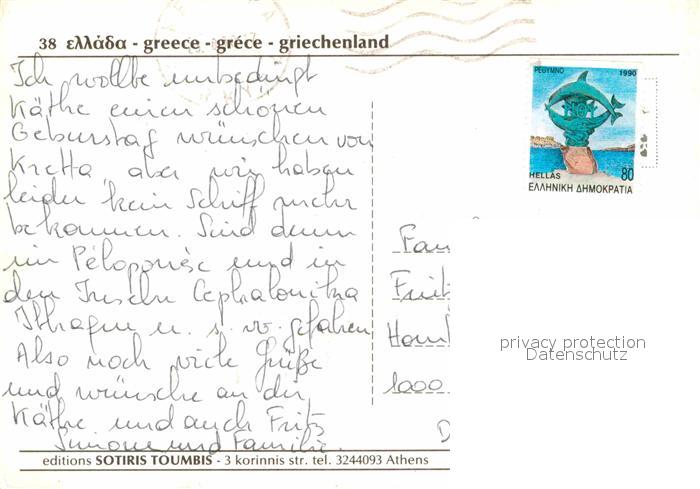 38 ελλάδα - greece - gréce - griechenland
Ich wollte unbedingt
Käthe einen schönen
Geburstag wünschen von
Kretta, aber wir haben
leider kein Schiff mehr
bekommen. Sind dann
im Péloponèse und in
den Inseln Cephalonikia
Ithaque u. s. w. gefahren
Also noch viele Grüße
und wünsche an die
Käthe und auch Fritz
Simone und Familie.
ΡΕΘΥΜΝΟ 1990
HELLAS 80
ΕΛΛΗΝΙΚΗ ΔΗΜΟΚΡΑΤΙΑ
Fam
Fritz
1000
D
privacy protection
Datenschutz
editions SOTIRIS TOUMBIS - 3 korinnis str. tel. 3244093 Athens